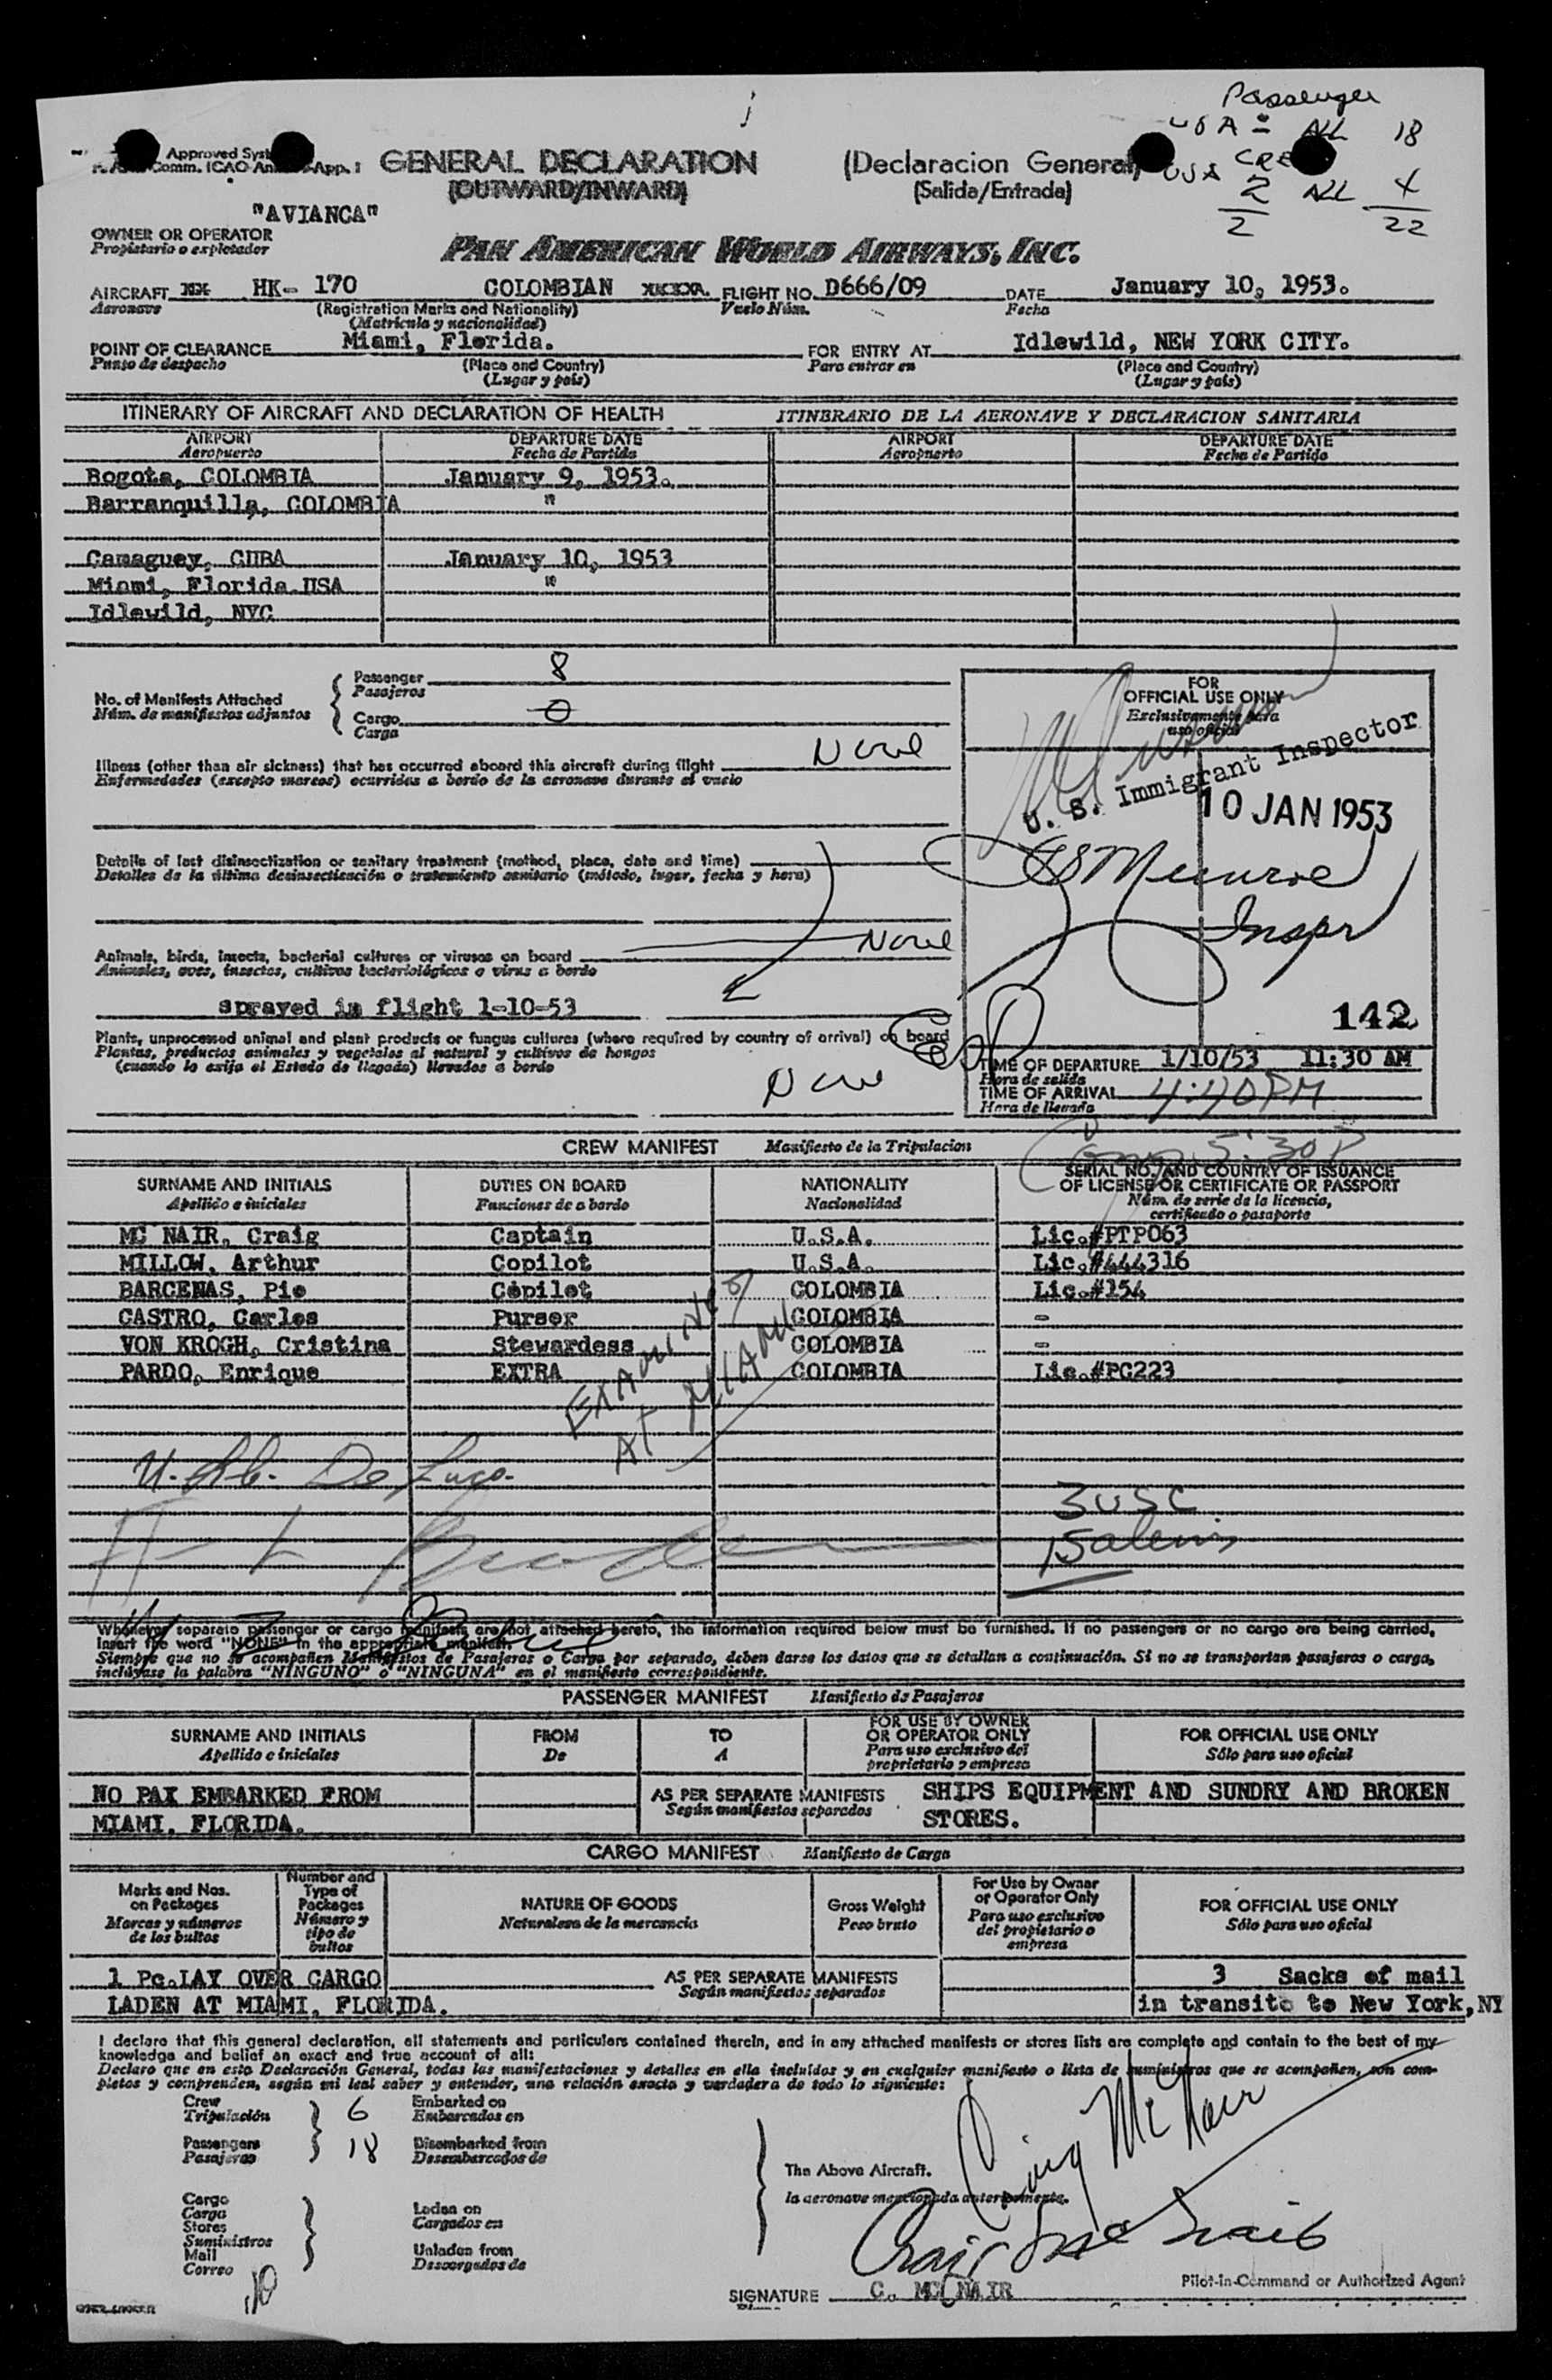 Passenger
USA = ALL 18
Approved Syst
Comm. ICAO An App. 1
GENERAL DECLARATION
(Declaracion General)
USA CRE
2 ALL 4
(OUTWARD/INWARD)
(Salida/Entrada)
2 22
"AVIANCA"
OWNER OR OPERATOR
Propietario o explotador
PAN AMERICAN WORLD AIRWAYS, INC.
AIRCRAFT HK- 170 COLOMBIAN FLIGHT NO. D666/09 DATE January 10, 1953.
Aeronave (Registration Marks and Nationality) Vuelo Núm. Fecha
(Matrícula y nacionalidad)
POINT OF CLEARANCE Miami, Florida. FOR ENTRY AT Idlewild, NEW YORK CITY.
Punto de despacho (Place and Country) Para entrar en (Place and Country)
(Lugar y país) (Lugar y país)
ITINERARY OF AIRCRAFT AND DECLARATION OF HEALTH ITINERARIO DE LA AERONAVE Y DECLARACION SANITARIA
AIRPORT DEPARTURE DATE AIRPORT DEPARTURE DATE
Aeropuerto Fecha de Partida Aeropuerto Fecha de Partida
Bogota, COLOMBIA January 9, 1953.
Barranquilla, COLOMBIA "
Camaguey, CUBA January 10, 1953
Miami, Florida USA "
Idlewild, NYC
No. of Manifests Attached
Núm. de manifiestos adjuntos
Passenger 8
Pasajeros
Cargo 0
Carga
FOR
OFFICIAL USE ONLY
Exclusivamente para
uso oficial
Illness (other than air sickness) that has occurred aboard this aircraft during flight None
Enfermedades (excepto mareos) ocurridas a bordo de la aeronave durante el vuelo
U. S. Immigrant Inspector
10 JAN 1953
Munroe
Inspr
Details of last disinsectization or sanitary treatment (method, place, date and time)
Detalles de la última desinsectización o tratamiento sanitario (método, lugar, fecha y hora)
Animals, birds, insects, bacterial cultures or viruses on board None
Animales, aves, insectos, cultivos bacteriológicos o virus a bordo
sprayed in flight 1-10-53
142
Plants, unprocessed animal and plant products or fungus cultures (where required by country of arrival) on board
Plantas, productos animales y vegetales al natural y cultivos de hongos
(cuando lo exija el Estado de llegada) llevados a bordo
None
TIME OF DEPARTURE 1/10/53 11:30 AM
Hora de salida
TIME OF ARRIVAL 4:40 PM
Hora de llegada
5:30 P
CREW MANIFEST Manifiesto de la Tripulacion
SURNAME AND INITIALS DUTIES ON BOARD NATIONALITY SERIAL NO. AND COUNTRY OF ISSUANCE
OF LICENSE OR CERTIFICATE OR PASSPORT
Apellido e iniciales Funciones de a bordo Nacionalidad Núm. de serie de la licencia,
certificado o pasaporte
MC NAIR, Craig Captain U.S.A. Lic.#PTP063
MILLOW, Arthur Copilot U.S.A. Lic.#444316
BARCENAS, Pio Copilot COLOMBIA Lic.#154
CASTRO, Carlos Purser COLOMBIA -
VON KROGH, Cristina Stewardess COLOMBIA -
PARDO, Enrique EXTRA COLOMBIA Lic.#PC223
EXAMINED
AT MIAMI
3 USC
Whenever separate passenger or cargo manifests are not attached hereto, the information required below must be furnished. If no passengers or no cargo are being carried,
insert the word "NONE" in the appropriate manifest.
Siempre que no se acompañen Manifiestos de Pasajeros o Carga por separado, deben darse los datos que se detallan a continuación. Si no se transportan pasajeros o carga,
inclúyase la palabra "NINGUNO" o "NINGUNA" en el manifiesto correspondiente.
PASSENGER MANIFEST Manifiesto de Pasajeros
SURNAME AND INITIALS FROM TO FOR USE BY OWNER
OR OPERATOR ONLY FOR OFFICIAL USE ONLY
Apellido e iniciales De A Para uso exclusivo del
propietario o empresa Sólo para uso oficial
NO PAX EMBARKED FROM AS PER SEPARATE MANIFESTS SHIPS EQUIPMENT AND SUNDRY AND BROKEN
MIAMI, FLORIDA. Según manifiestos separados STORES.
CARGO MANIFEST Manifiesto de Carga
Marks and Nos.
on Packages
Marcas y números
de los bultos
Number and
Type of
Packages
Número y
tipo de
bultos
NATURE OF GOODS
Naturaleza de la mercancía
Gross Weight
Peso bruto
For Use by Owner
or Operator Only
Para uso exclusivo
del propietario o
empresa
FOR OFFICIAL USE ONLY
Sólo para uso oficial
1 Pc.LAY OVER CARGO AS PER SEPARATE MANIFESTS 3 Sacks of mail
LADEN AT MIAMI, FLORIDA. Según manifiestos separados in transite to New York, NY
I declare that this general declaration, all statements and particulars contained therein, and in any attached manifests or stores lists are complete and contain to the best of my
knowledge and belief an exact and true account of all:
Declaro que en esta Declaración General, todas las manifestaciones y detalles en ella incluidos y en cualquier manifiesto o lista de suministros que se acompañen, son com-
pletos y comprenden, según mi leal saber y entender, una relación exacta y verdadera de todo lo siguiente:
Crew 6 Embarked on
Tripulación Embarcados en
Passengers 18 Disembarked from
Pasajeros Desembarcados de
Cargo
Carga
Stores
Suministros
Mail
Correo
Laden on
Cargados en
Unladen from
Descargados de
The Above Aircraft.
la aeronave mencionada anteriormente.
Craig Mc Nair
Craig Mc Nair
SIGNATURE C. MC NAIR
Pilot-in-Command or Authorized Agent